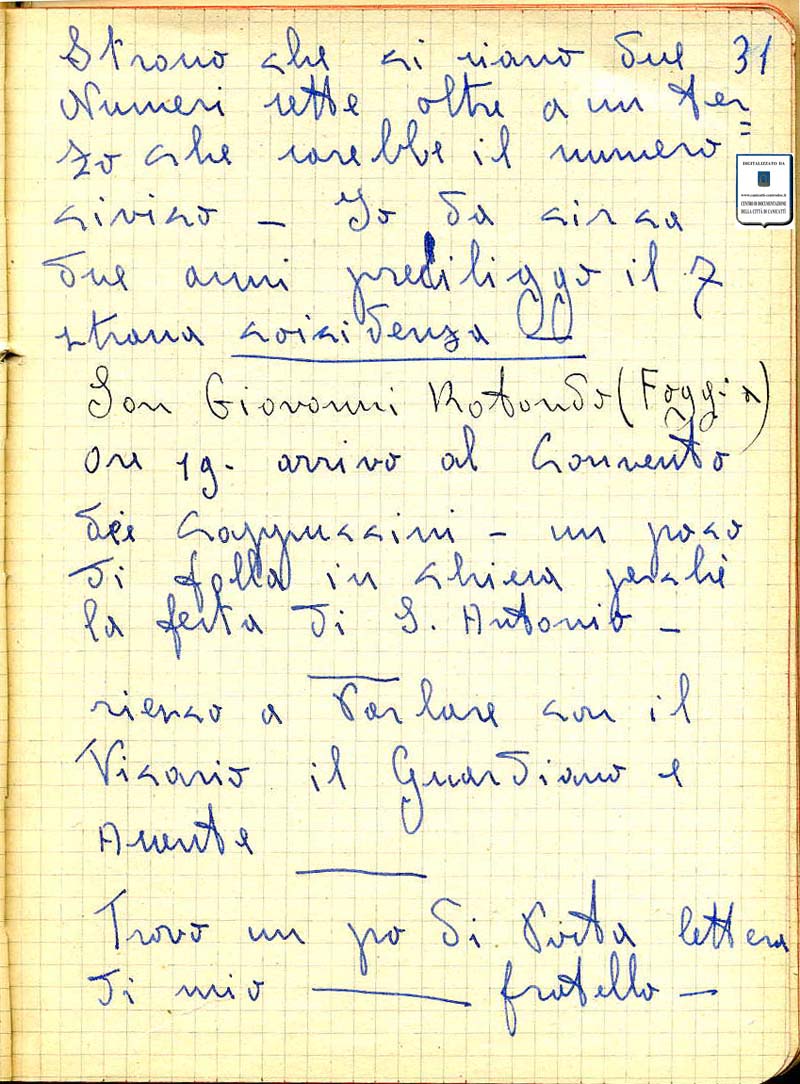 Strano che ci siano due 31
Numeri sette oltre a un ter
=
zo che sarebbe il numero
civico – Io da circa
due anni prediliggo il 7
strana coicidenza
San Giovanni Rotondo (Foggia)
Ore 19. arrivo al Convento
dei Cappuccini – un poco
di folla in chiesa perchè
la festa di S. Antonio –
riesco a Parlare con il
Vicario il Guardiano e
Assente
Trovo un po di Posta lettera
di mio fratello –
DIGITALIZZATO DA
www.canicatti-centrodoc.it
CENTRO DI DOCUMENTAZIONE
DELLA CITTÀ DI CANICATTÌ